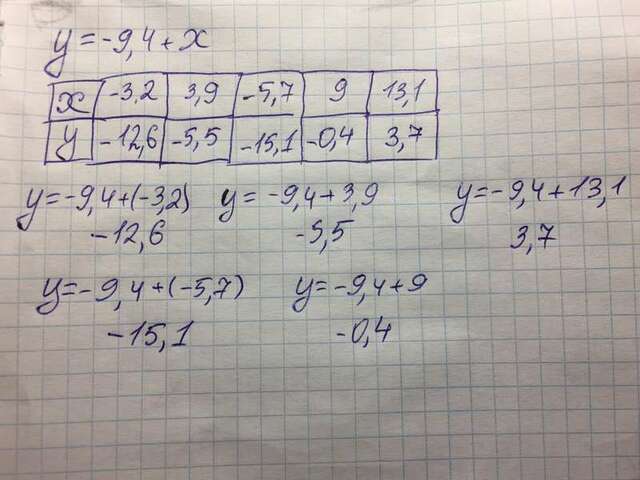 y = -9,4 + x
x -3,2 3,9 -5,7 9 13,1
y -12,6 -5,5 -15,1 -0,4 3,7
y = -9,4 + (-3,2) y = -9,4 + 3,9 y = -9,4 + 13,1
-12,6 -5,5 3,7
y = -9,4 + (-5,7) y = -9,4 + 9
-15,1 -0,4